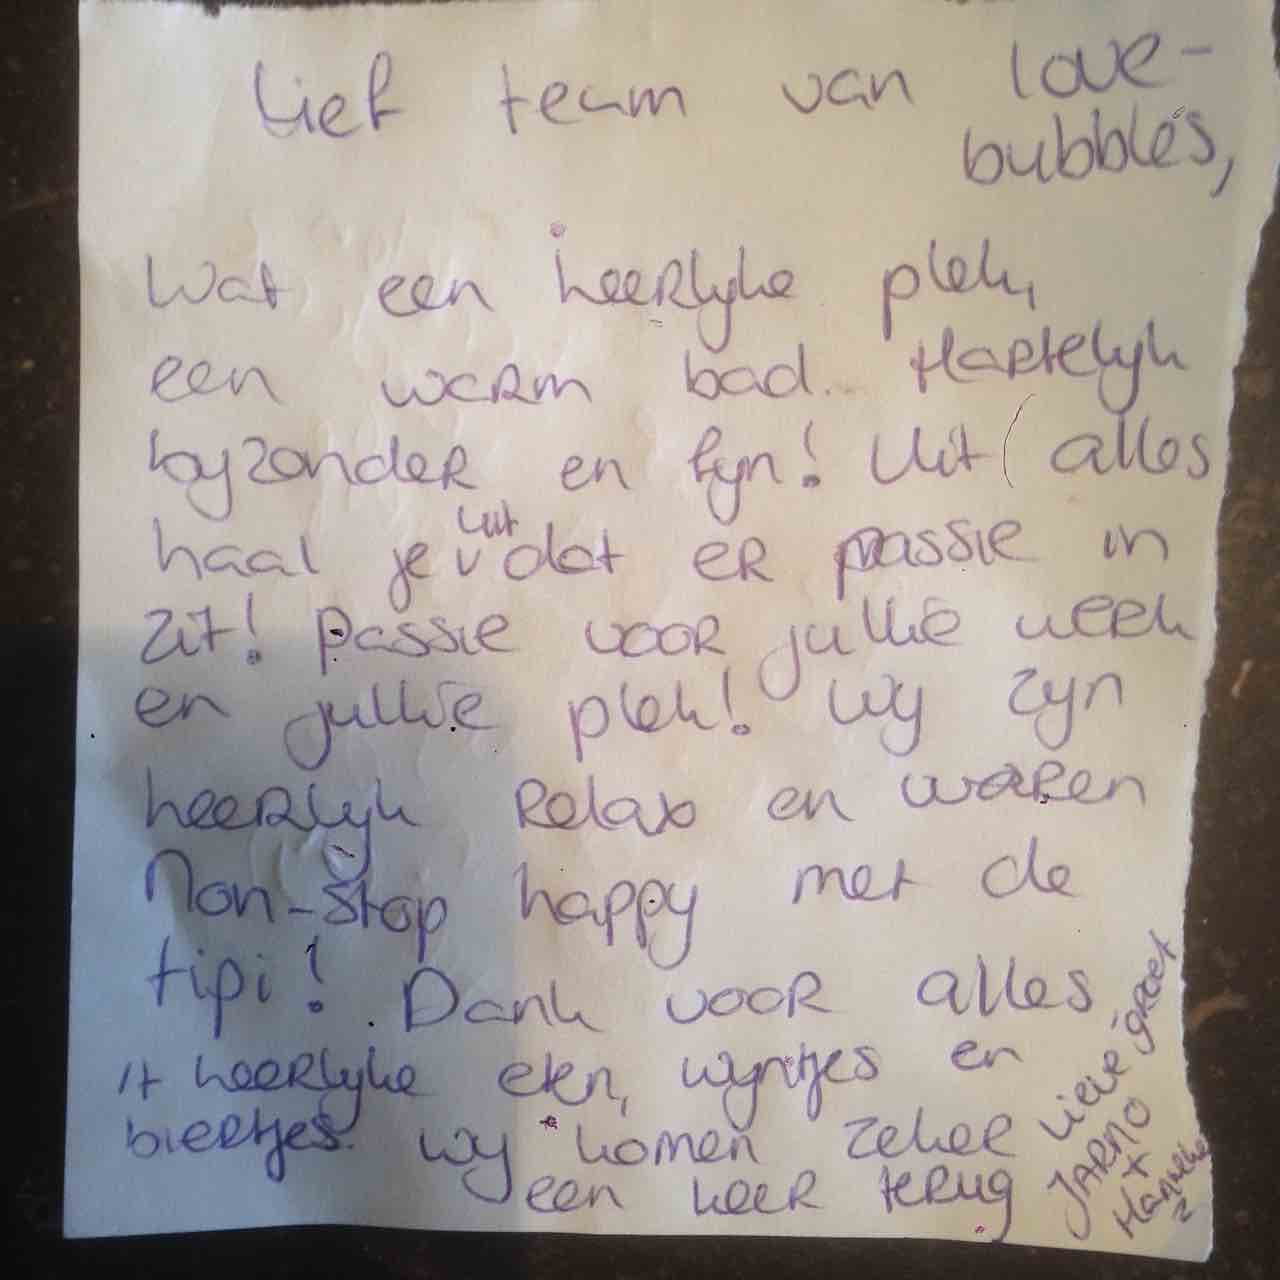 Lief team van love-
bubbles,
Wat een heerlijke plek,
een warm bad. Hartelijk
bijzonder en fijn! Uit alles
haal je uit dat er passie in
zit! Passie voor jullie werk
en jullie plek! Wij zijn
heerlijk relax en waren
Non-stop happy met de
tipi! Dank voor alles
't heerlijke eten, wijntjes en
biertjes. Wij komen zeker
een keer terug
Lieve groet
JARNO
+